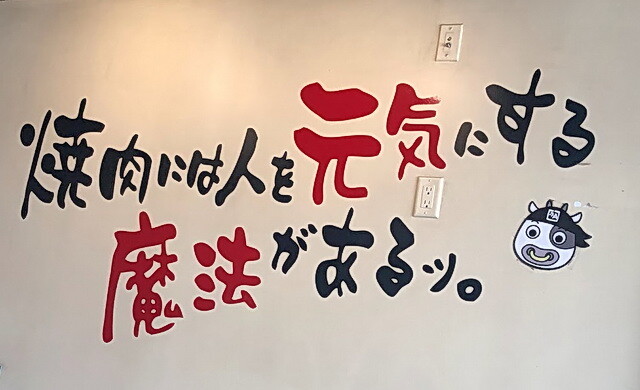 焼肉には人を元気にする
魔法があるッ。